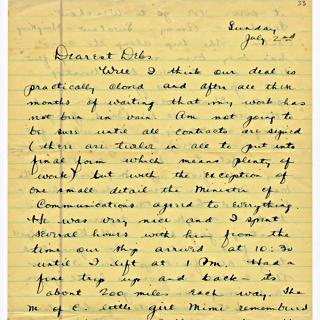 33
Sunday
July 2nd
Dearest Debs
Well I think our deal is
practically closed and after all these
months of waiting that my work has
not been in vain. Am not going to
be sure until all contracts are signed
(there are twelve in all to put into
final form which means plenty of
work) but with the exception of
one small detail the Minister of
Communications agreed to everything.
He was very nice and I spent
several hours with him from the
time our ship arrived at 10:30
until I left at 1 PM. Had a
fine trip up and back - its
about 200 miles each way. The
M of C. little girl Mimi remembered